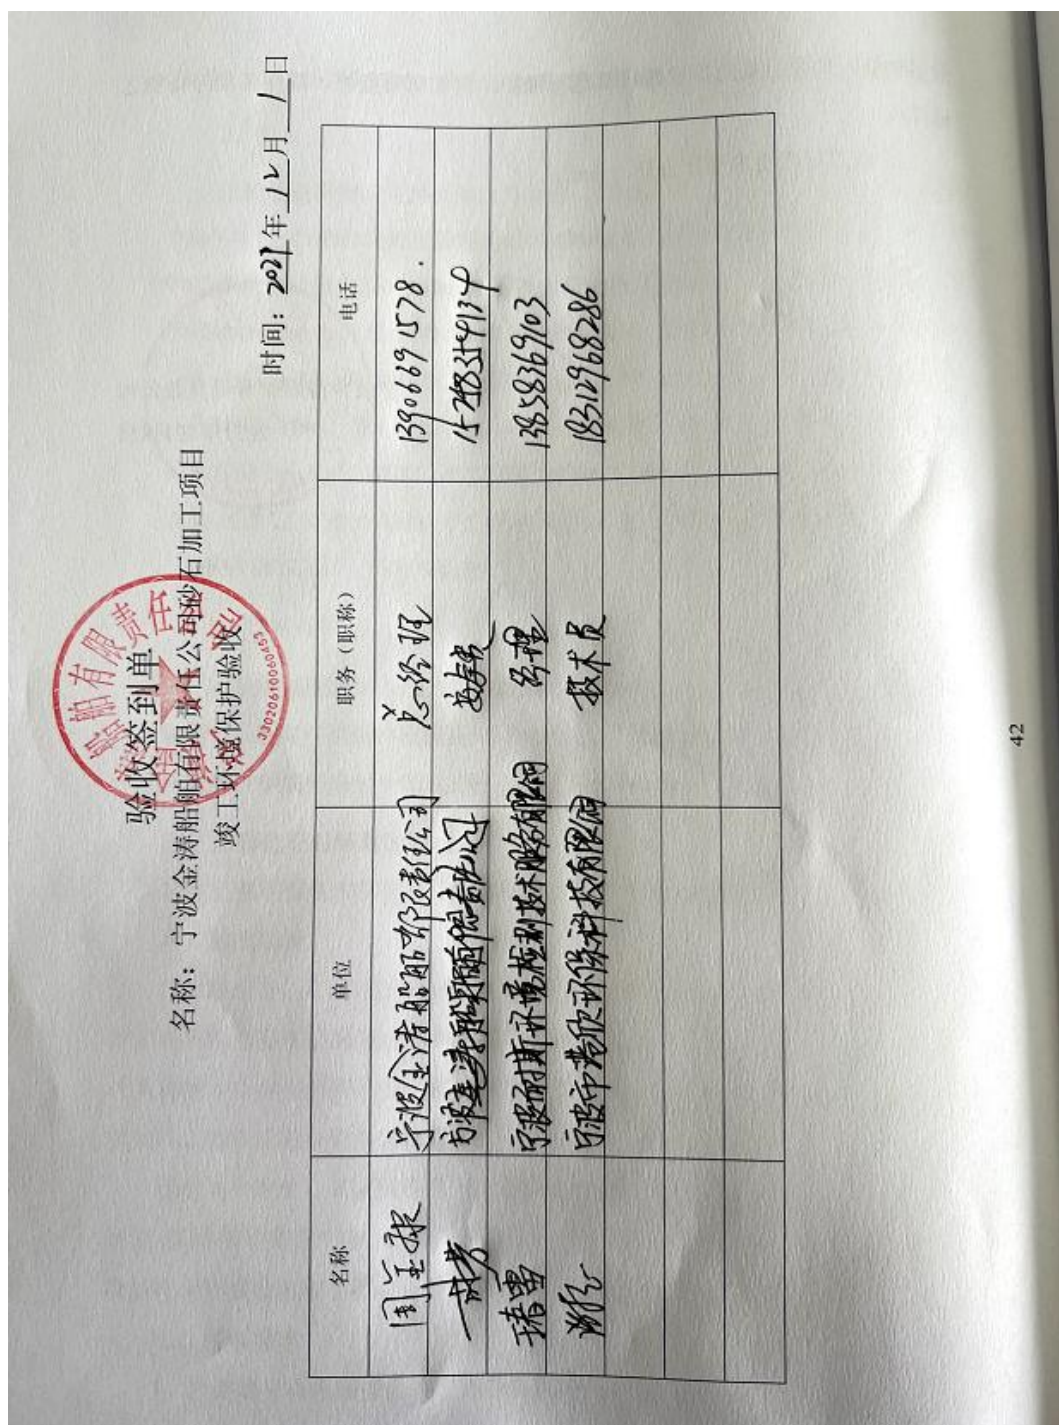 验收签到单
名称：宁波金涛船舶有限责任公司砂石加工项目
竣工环境保护验收
时间：2021年12月1日
名称 单位 职务（职称） 电话
周 宁波金涛船舶有限责任公司 总经理 13906691578.
宁波金涛船舶有限责任公司
宁波耐斯环境检测技术服务有限公司 经理 13858369103
宁波市 环保科技有限公司 技术员 18312968286
船舶有限责任公司
33020610060453
42